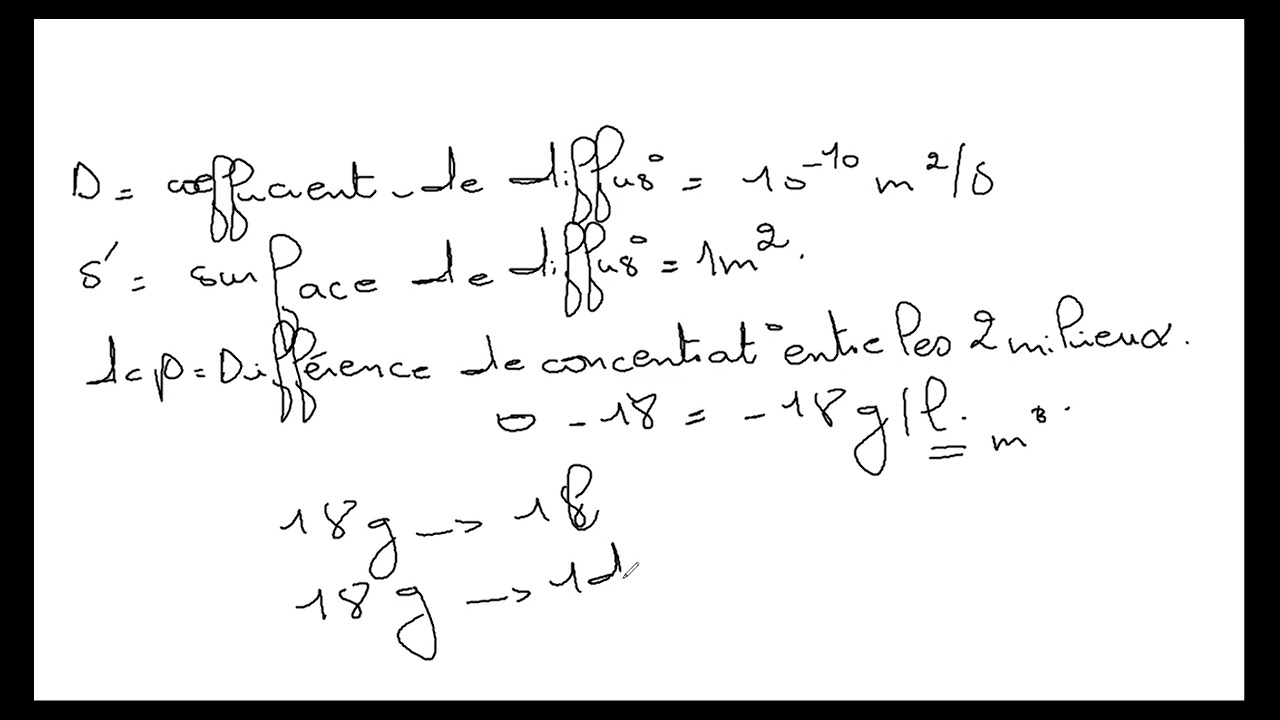 D = coefficient de diffus° = 10⁻¹⁰ m²/s
S' = surface de diffus° = 1m².
dcp = Différence de concentrat° entre les 2 milieux.
0 - 18 = - 18 g/l. m³.
18 g -> 1 l
18 g -> 1 d